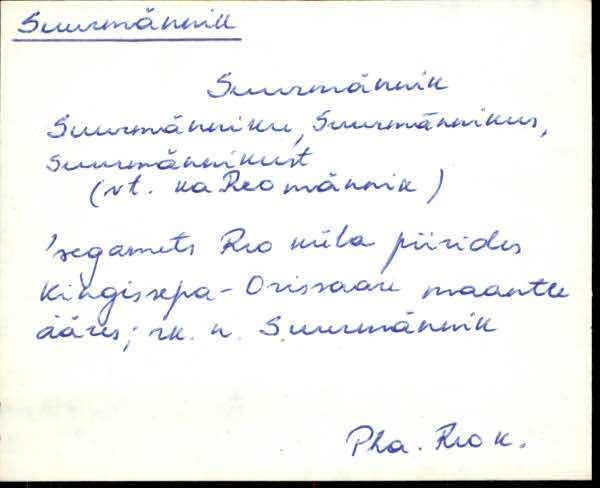 Suurmännik
Suurmännik
Suurmänniku, Suurmännikus,
Suurmännikust
(vt. ka Reo männik)
'segamets Reo küla piirides
Kingissepa - Orissaare maantee
ääres; rk. n. Suurmännik
Pha. Reo k.